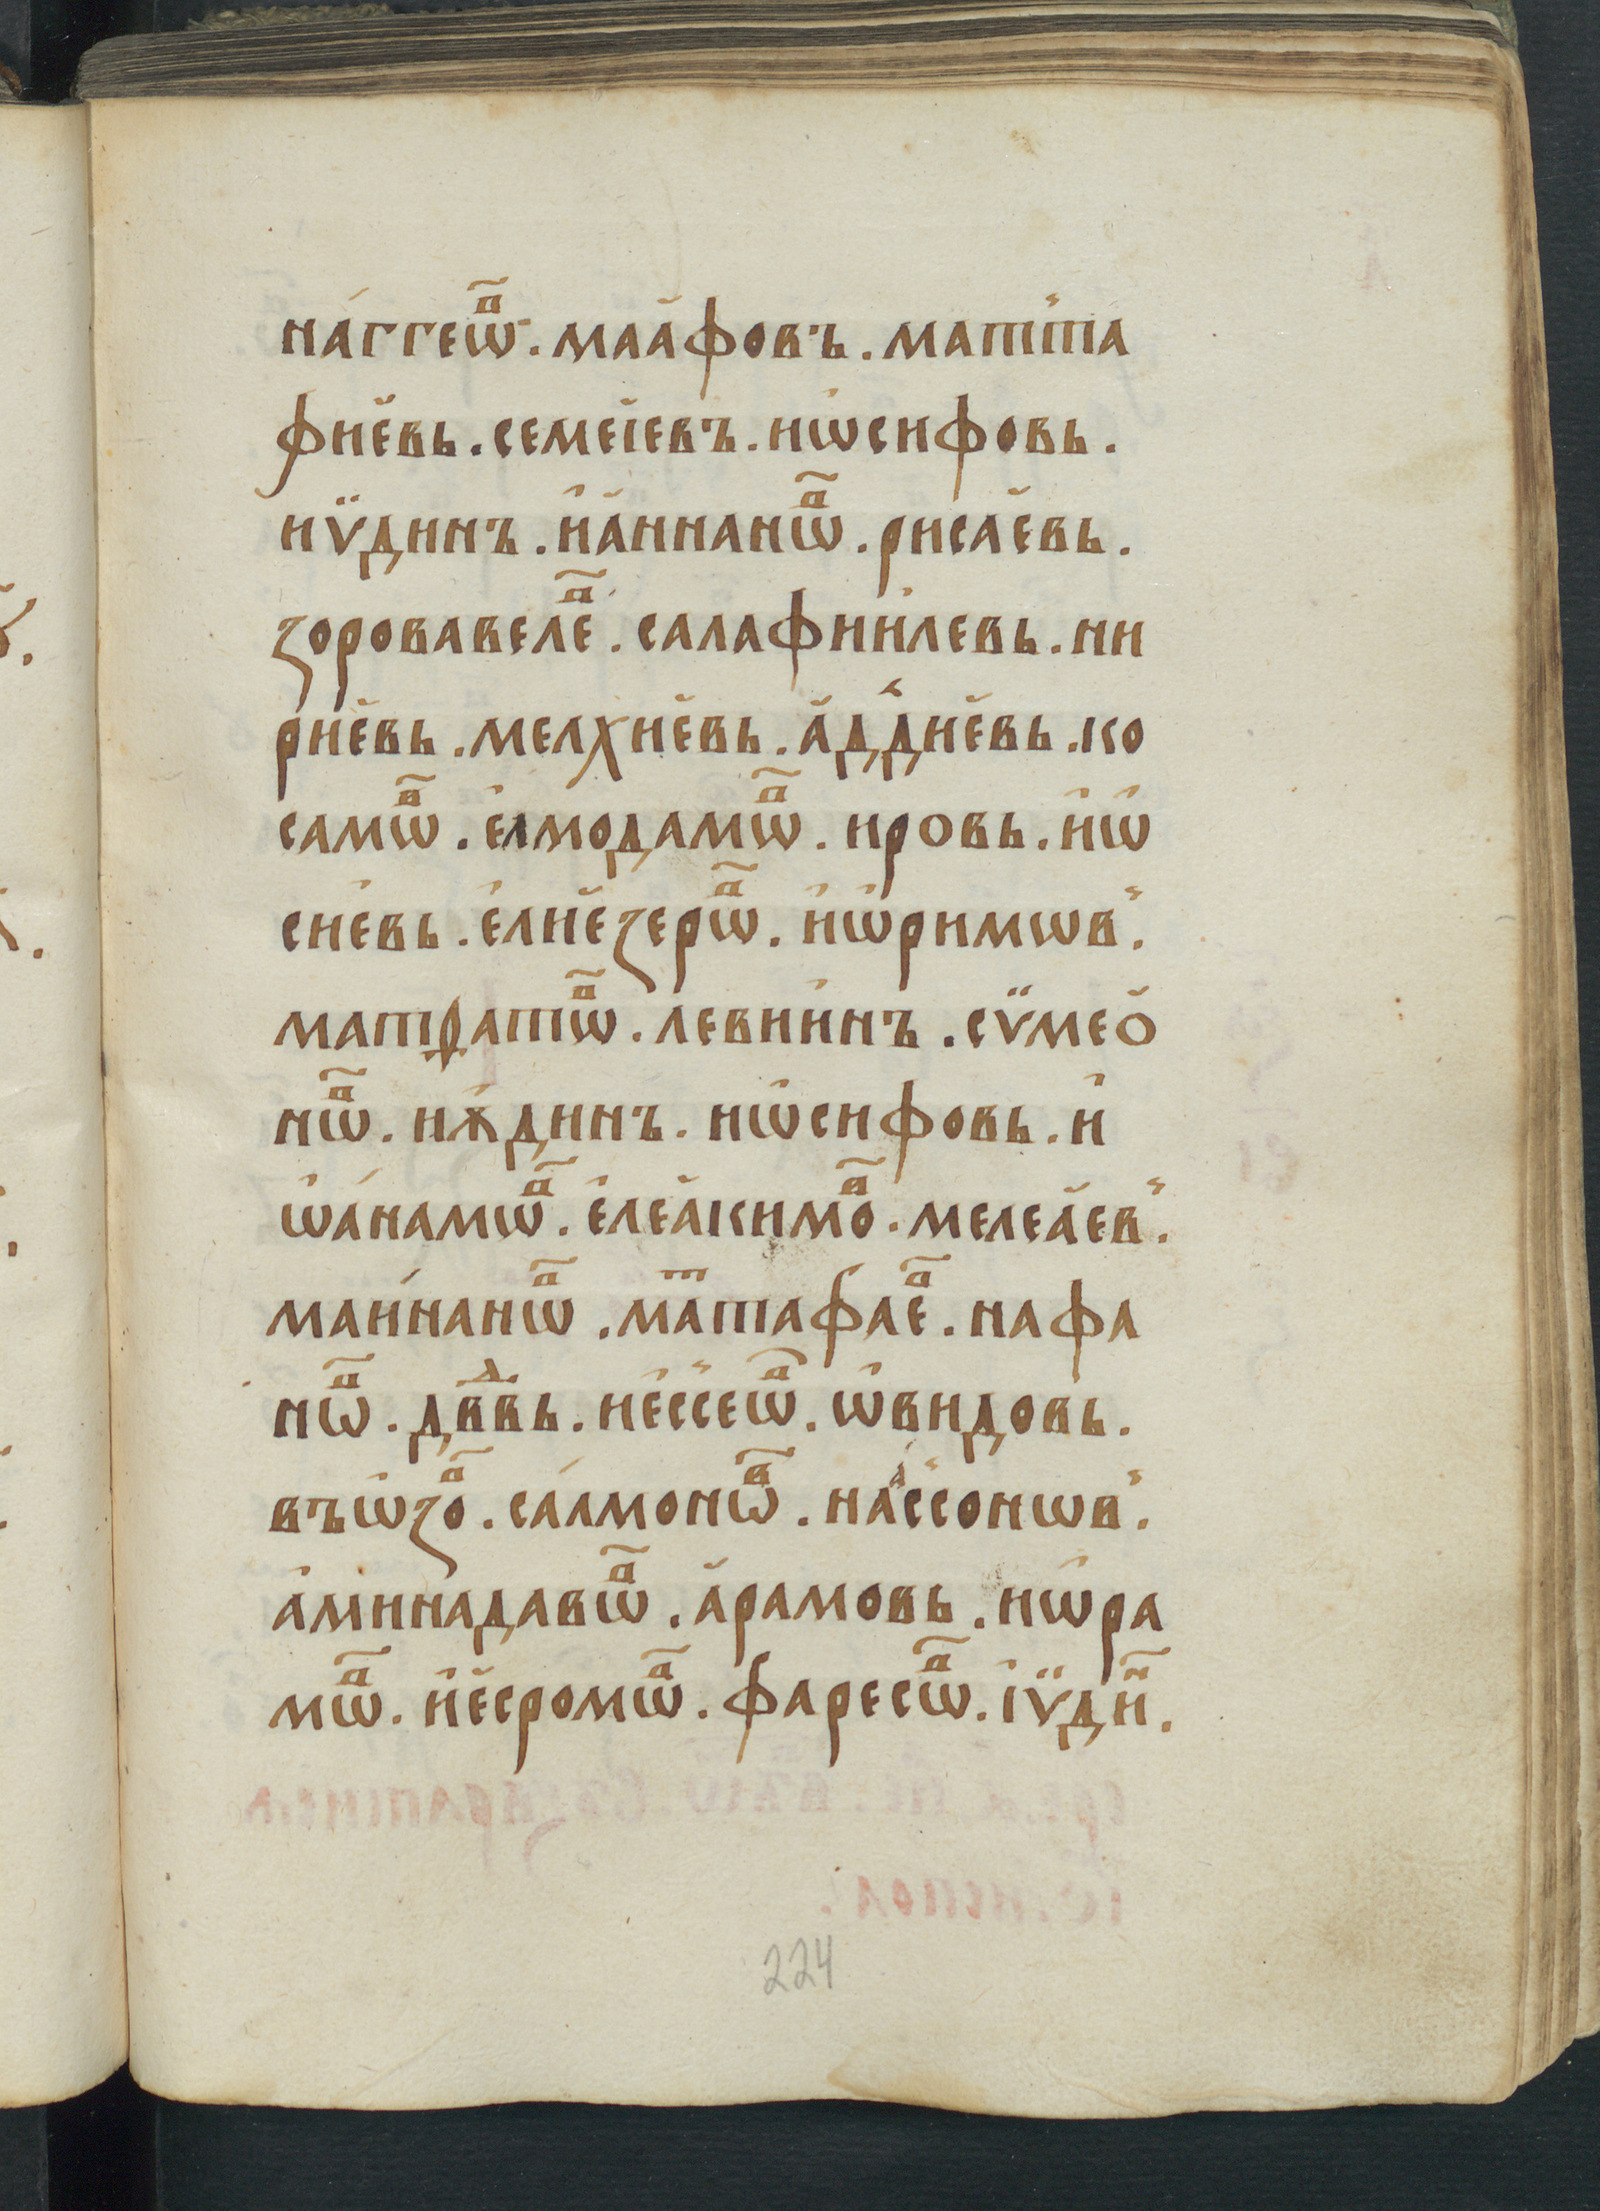 на́ггеѡⷡ҇. маӑфовъ. мат̾та
фиӗвь. семеі̆евъ. иѡ҆сифовь.
иѵ̈динъ. и҆ӑннанѡⷡ҇. рисаӗвь.
ꙁоровавелеⷡ҇. салафии҆левь. ни
риӗвь. мелхиӗвь. а҆д̾диӗвь. ко
самѡⷡ҇. е҆лмодамѡⷡ҇. ировь. и҆ѡ҆
сие҆вь. е҆лиӗꙁерѡⷡ҇. и҆ѡ҆римѡв̾.
матѳатѡⷡ҇. левии҆нъ. сѵ̈мео̆
нѡⷡ҇. иѫ҆динъ. иѡ҆сифовь. и҆
ѡ҆а́намѡⷡ҇. е҆леӑкимоⷡ҇. мелеӑев̾.
маи́нанѡⷡ҇. маⷮтафаеⷡ҇. нафа
нѡⷡ҇. двⷣвь. ие҆с̾сеѡⷡ҇. ѡ҆видовь.
въѡ҆ꙁоⷡ҇. са́лмонѡⷡ҇. наас̾сонѡв̾.
а҆мина҆давѡⷡ҇. а҆рамовь. иѡ҆ра
мѡⷡ҇. и҆ӗсромѡⷡ҇. фаресѡⷡ҇. і҆ѵ̈диⷩ҇.
224